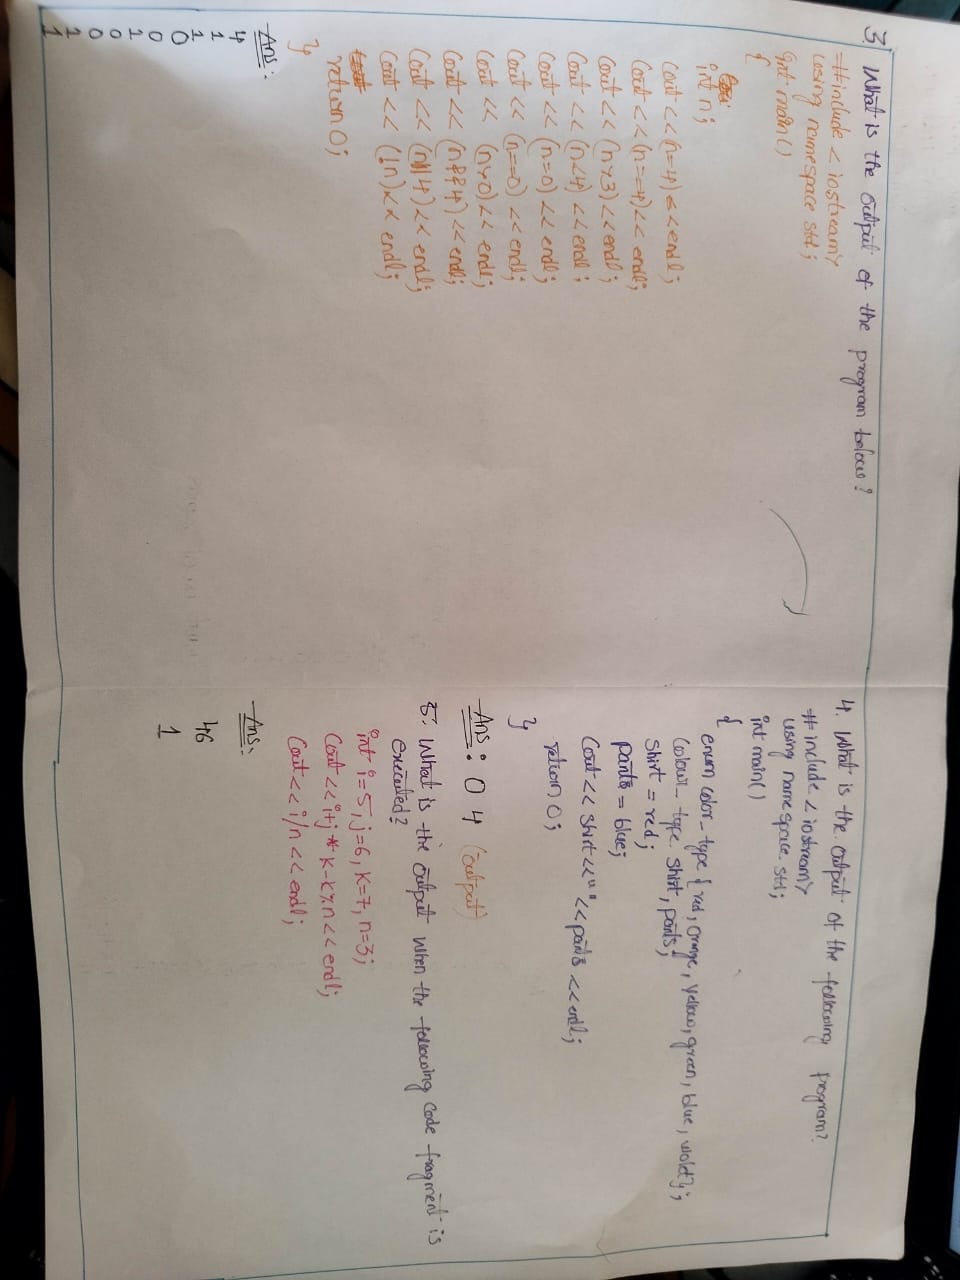 3. What is the output of the program below?
#include <iostream>
using namespace std;
int main()
{
int n;
cout << (n=4) << endl;
cout << (n==4) << endl;
cout << (n>3) << endl;
cout << (n<4) << endl;
cout << (n=0) << endl;
cout << (n==0) << endl;
cout << (n>0) << endl;
cout << (n&&4) << endl;
cout << (n||4) << endl;
cout << (!n) << endl;
return 0;
}
Ans:
4
1
1
0
0
1
0
0
1
1
4. What is the output of the following program?
#include <iostream>
using namespace std;
int main()
{
enum color_type {red, orange, yellow, green, blue, violet};
colour_type shirt, pants;
shirt = red;
pants = blue;
cout << shirt << " " << pants << endl;
return 0;
}
Ans: 0 4 (output)
5. What is the output when the following code fragment is
executed?
int i=5, j=6, k=7, n=3;
cout << i+j * k-k%n << endl;
cout << i/n << endl;
Ans:
46
1